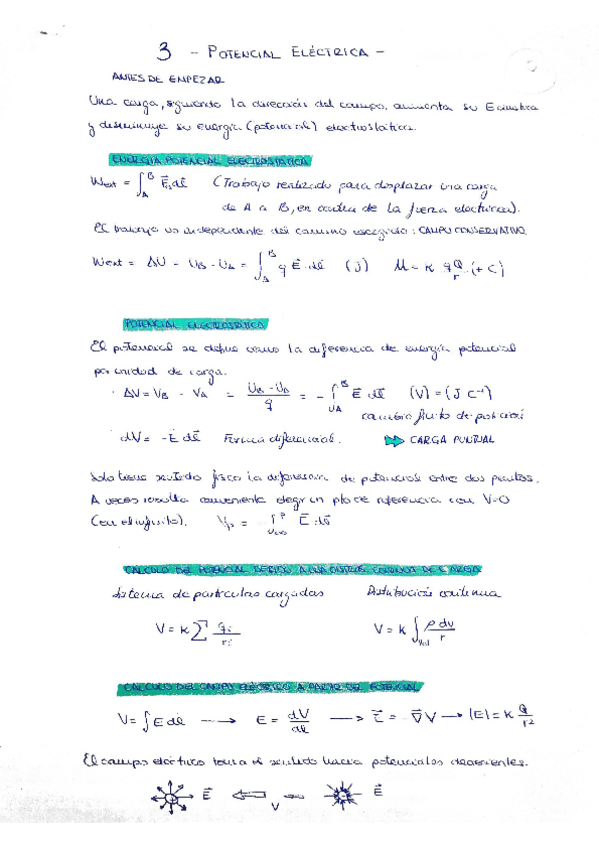 3 - POTENCIAL ELÉCTRICA -
ANTES DE EMPEZAR
Una carga, siguiendo la dirección del campo, aumenta su E cinética
y disminuye su energía (potencial) electrostática.
ENERGÍA POTENCIAL ELECTROSTÁTICA
West = ∫_A^B F⃗ dl⃗ (Trabajo realizado para desplazar una carga
de A a B, en contra de la fuerza eléctrica).
El trabajo es independiente del camino escogido: CAMPO CONSERVATIVO.
West = ΔU = U_B - U_A = ∫_A^B q E⃗ · dl⃗ (J) U = K qQ/r (+ C)
POTENCIAL ELECTROSTÁTICO
El potencial se define como la diferencia de energía potencial
por unidad de carga.
· ΔV = V_B - V_A = (U_B - U_A)/q = - ∫_A^B E⃗ dl⃗ (V) = (J C⁻¹)
cambio finito de posición
dV = -E⃗ dl⃗ Forma diferencial. CARGA PUNTUAL
Solo tiene sentido físico la diferencia de potencial entre dos puntos.
A veces resulta conveniente elegir un pto de referencia con V=0
(en el infinito). V_P = - ∫_∞^P E⃗ · dl⃗
CÁLCULO DEL POTENCIAL DEBIDO A UNA DE CARGA
Sistema de partículas cargadas Distribución continua
V = K ∑ qᵢ/rᵢ V = K ∫_Vol ρ dv/r
CÁLCULO DEL CAMPO ELÉCTRICO A PARTIR DEL POTENCIAL
V = ∫ E dl → E = dV/dl → E⃗ = -∇⃗V → |E| = K Q/r²
El campo eléctrico toma el sentido hacia potenciales decrecientes.
E⃗ V E⃗